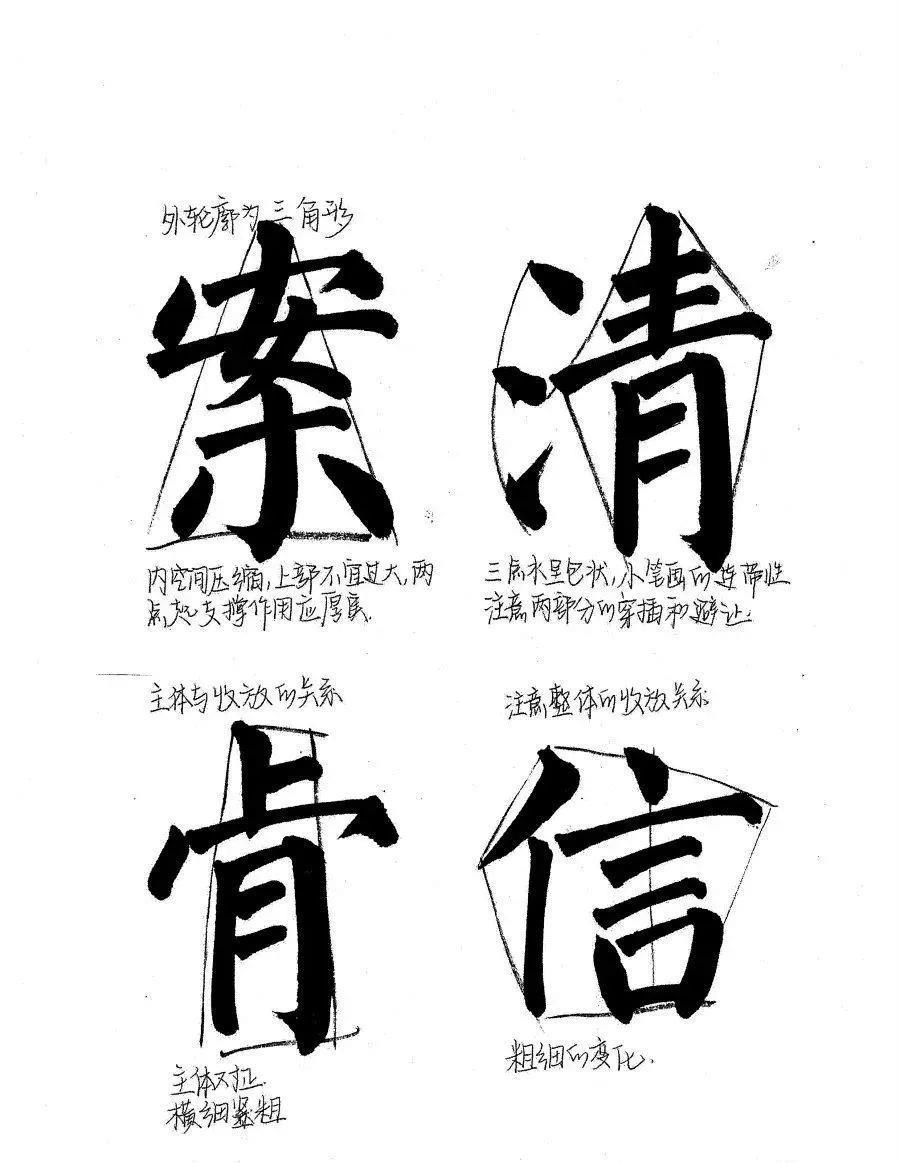 外轮廓为三角形
案
内空间压缩，上部不宜过大，两
点起支撑作用应厚实.
清
三点水呈包状，小笔画的连带性
注意两部分的穿插和避让.
主体与收放的关系
肯
主体对正.
横细竖粗
注意整体的收放关系
信
粗细的变化.